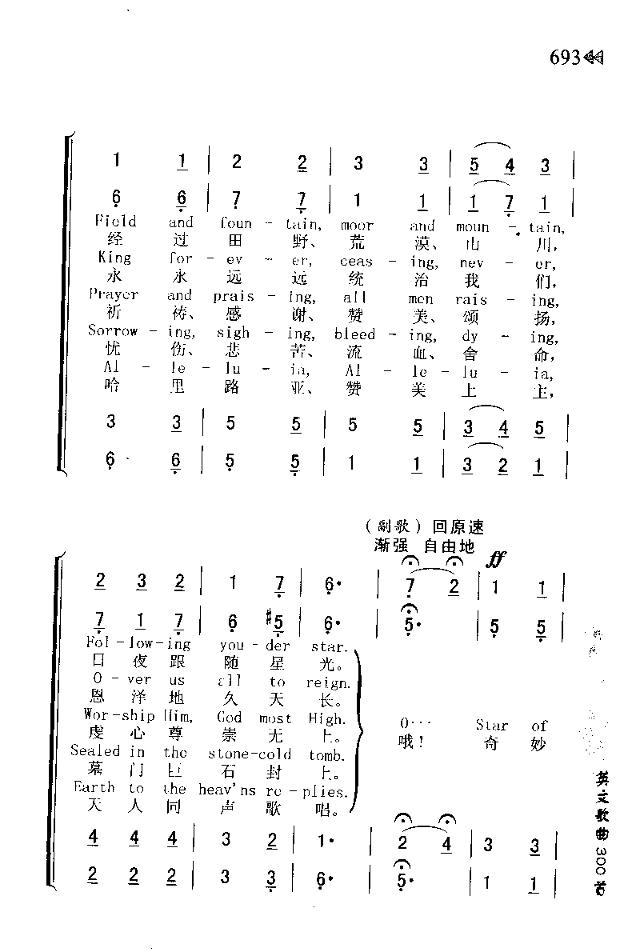 693
1 1 | 2 2 | 3 3 | 5 4 3 |
6 6 | 7 7 | 1 1 | 1 7 1 |
Field and foun - tain, moor and moun - tain,
经 过 田 野、 荒 漠、 山 川,
King for - ev - er, ceas - ing, nev - er,
永 永 远 远 统 治 我 们,
Prayer and prais - ing, all men rais - ing,
祈 祷、 感 谢、 赞 美、 颂 扬,
Sorrow - ing, sigh - ing, bleed - ing, dy - ing,
忧 伤、 悲 苦、 流 血、 舍 命,
Al - le - lu - ia, Al - le - lu - ia,
哈 里 路 亚, 赞 美 上 主,
3 3 | 5 5 | 5 5 | 3 4 5 |
6 6 | 5 5 | 1 1 | 3 2 1 |
(副歌) 回原速
渐强 自由地 ff
2 3 2 | 1 7 | 6· | 7 2 | 1 1 |
7 1 7 | 6 #5 | 6· | 5· | 5 5 |
Fol - low - ing yon - der star.
日 夜 跟 随 星 光。
O - ver us all to reign.
恩 泽 地 久 天 长。
Wor - ship Him, God most High.
虔 心 尊 崇 无 上。
O… Star of
哦! 奇 妙
Sealed in the stone - cold tomb.
墓 门 石 封 上。
Earth to the heav'ns re - plies.
天 人 同 声 歌 唱。
4 4 4 | 3 2 | 1· | 2 4 | 3 3 |
2 2 2 | 3 3 | 6· | 5· | 1 1 |
英文歌曲300首